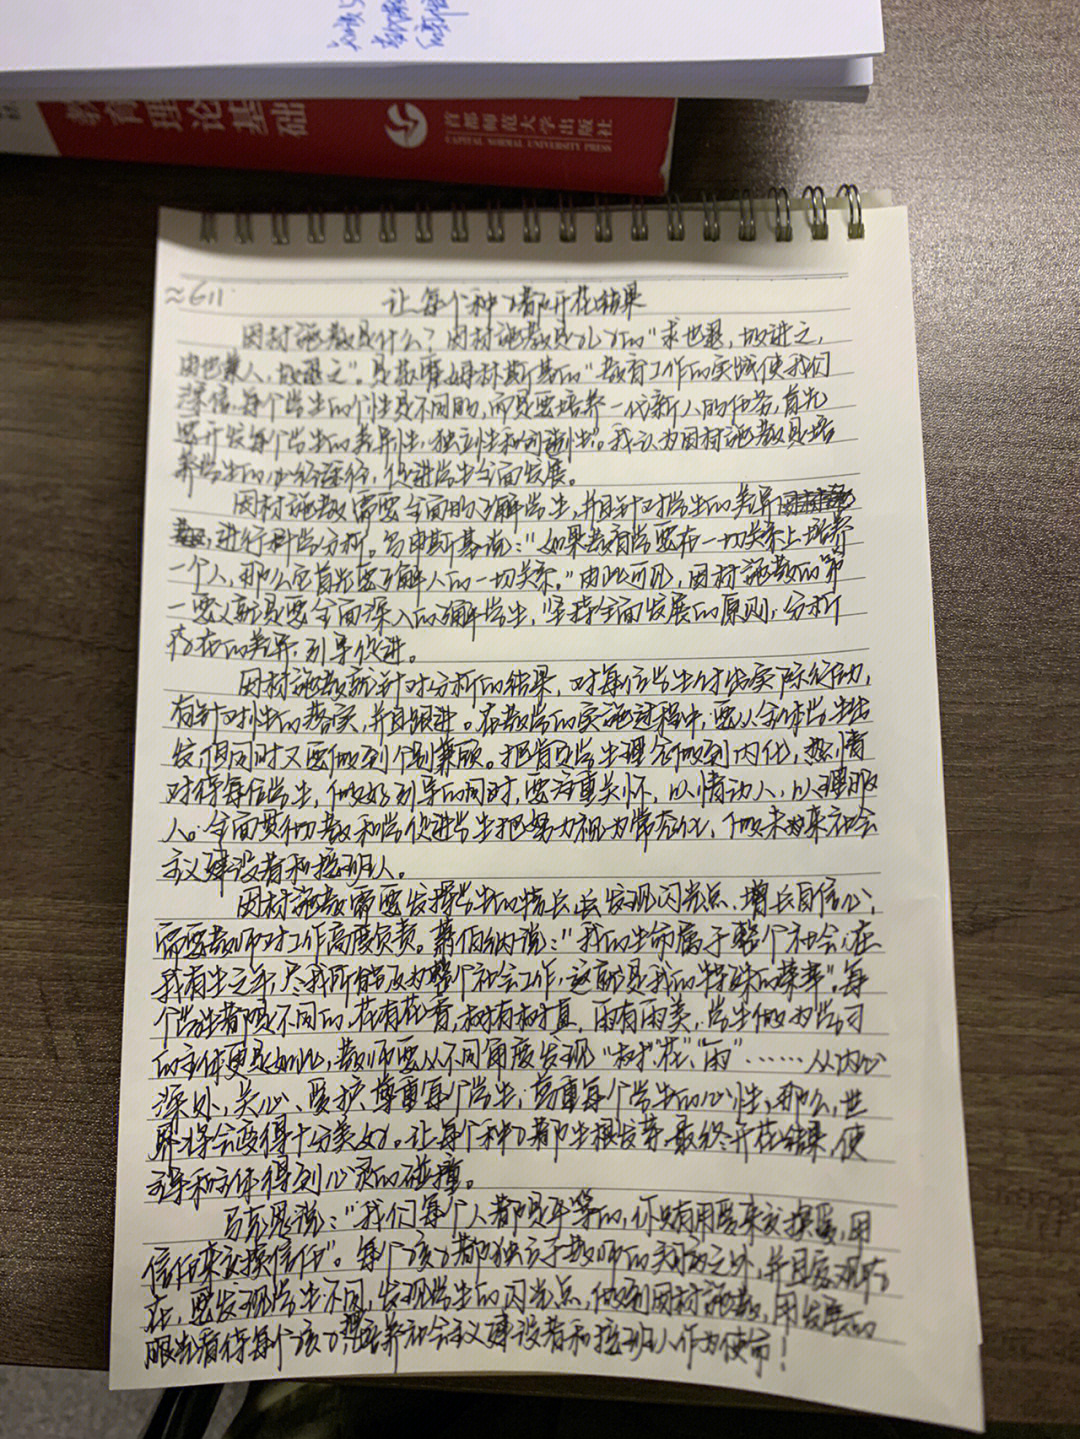 教育理论基础
首都师范大学出版社
CAPITAL NORMAL UNIVERSITY PRESS
≈611
让每个种子都开花结果
因材施教是什么?因材施教是孔子的"求也退,故进之,
由也兼人,故退之"。是苏霍姆林斯基的"教育工作的实践使我们
深信,每个学生的个性是不同的,而是要培养一代新人的任务,首先
要开发每个学生的差异性、独立性和创造性"。我认为因材施教是培
养学生的必经途径,促进学生全面发展。
因材施教需要全面的了解学生,并且针对学生的差异
进行科学分析。乌申斯基说:"如果教育学要在一切关系上培养
一个人,那么它首先要了解人的一切关系。"由此可见,因材施教的第
一要义就是要全面深入的了解学生,坚持全面发展的原则,分析
存在的差异,引导促进。
因材施教就针对分析的结果,对每位学生付出实际行动,
有针对性的落实,并且跟进。在教学的实施过程中,要从全体学生出
发但同时又要做到个别兼顾。把育是学生理念做到内化,热情
对待每位学生,做好引导的同时,要注重关怀,以情动人,以理服
人。全面贯彻教和学促进学生把努力视为常态化,做未来社会
主义建设者和接班人。
因材施教需要发挥学生的特长去发现闪光点,增长自信心,
需要教师对工作高度负责。萧伯纳说:"我的生命属于整个社会,在
我有生之年,尽我所能为整个社会工作,这就是我的特殊的荣幸"。每
个学生都是不同的,花有花香,树有树直,雨有雨美,学生做为学习
的主体更是如此,教师要从不同角度发现"树""花""雨"……从内心
深处,关心、爱护、尊重每个学生,尊重每个学生的心性,那么,世
界将会变得十分美好。让每个种子都生根发芽最终开花结果,使
客体和主体得到心灵的碰撞。
马克思说:"我们每个人都是平等的,你只有用爱来交换爱,用
信任来交换信任"。每个孩子都独立于教师的 之外,并且客观存
在,要发现学生不同,发现学生的闪光点,做到因材施教,用发展的
眼光看待每个孩子,把培养社会主义建设者和接班人作为使命!